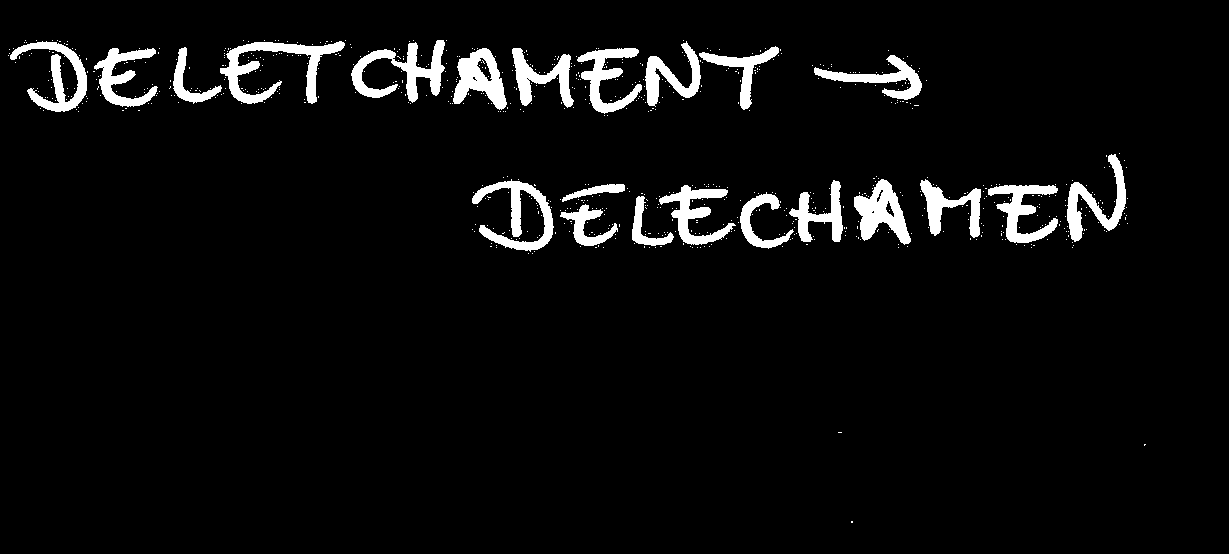 DELETCHAMENT →
DELECHAMEN